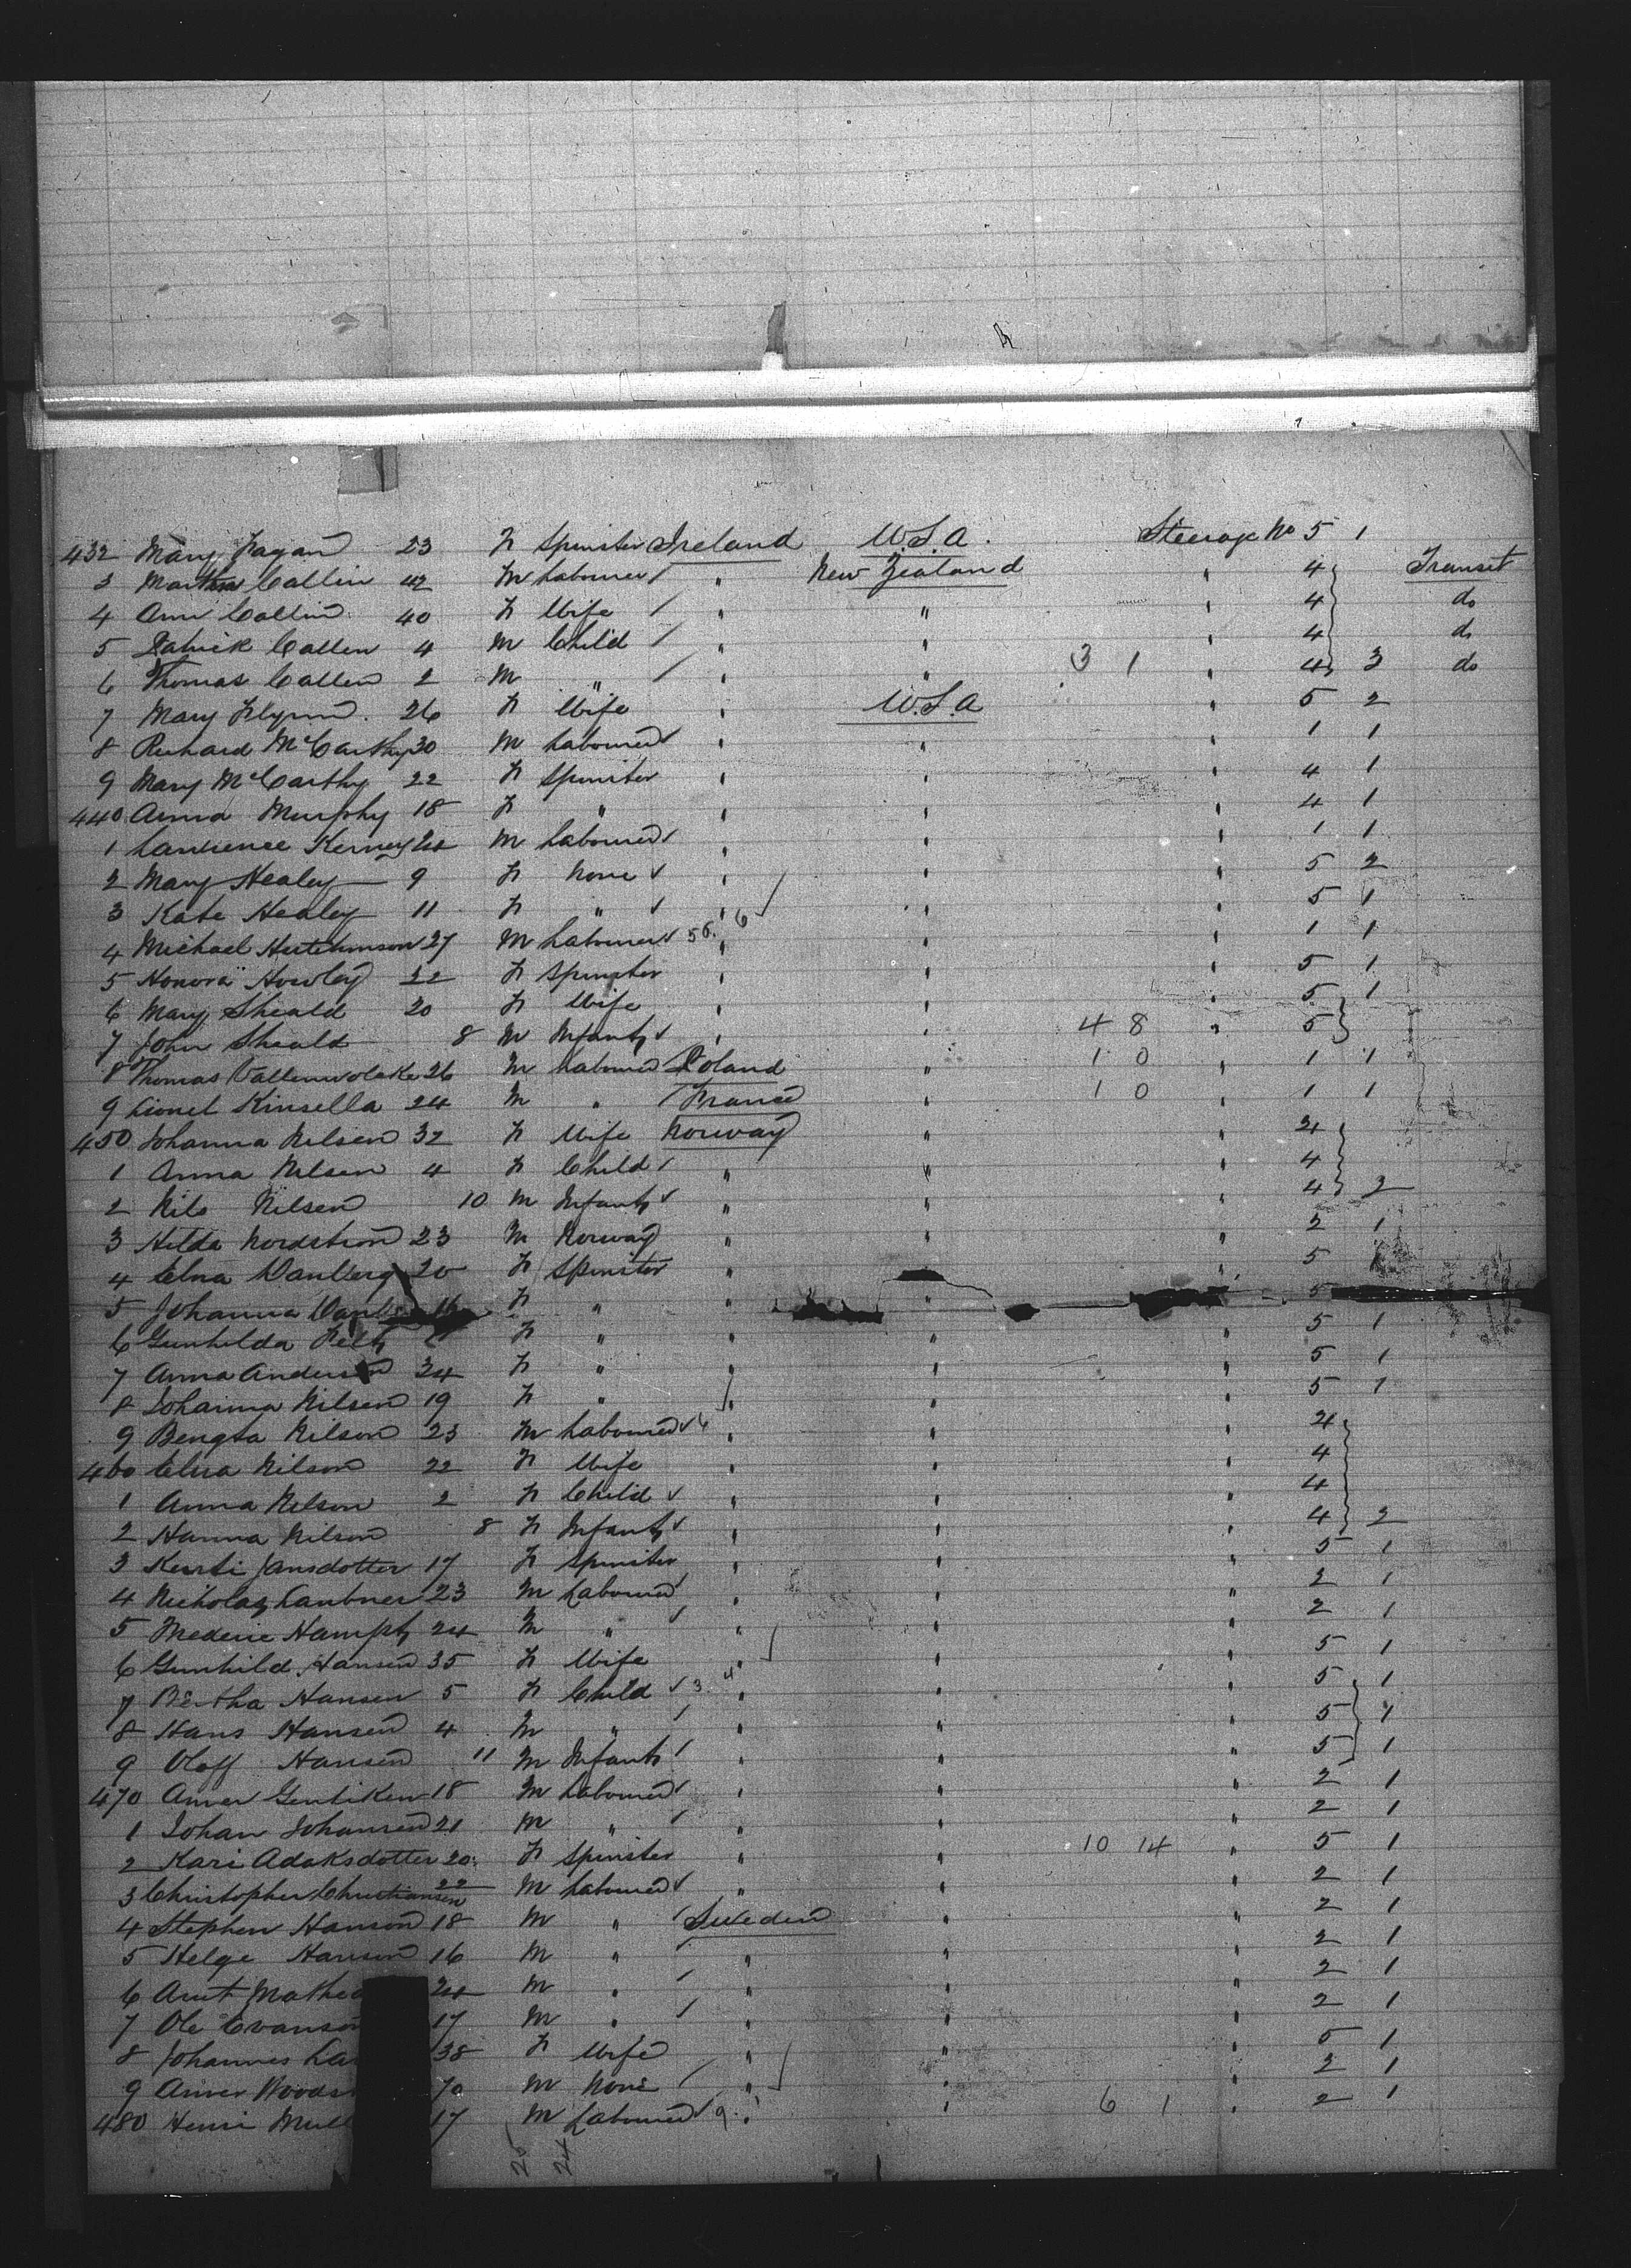 432 Mary Fagan 23 F Spinster Ireland U.S.A. Steerage No 5 1
3 Martin Callen 42 M Labourer / " New Zealand " 4 Transit
4 Ann Callen 40 F Wife / " " " 4 do
5 Patrick Callen 4 M Child / " " " 4 do
6 Thomas Callen 2 M " / " " 3 1 " 4 3 do
7 Mary Flynn 26 F Wife " U.S.A " 5 2
8 Richard McCarthy 30 M Labourer " " " 1 1
9 Mary McCarthy 22 F Spinster " " " 4 1
440 Annie Murphy 18 F " " " " 4 1
1 Lawrence Kerney 24 M Labourer " " " 1 1
2 Mary Healey 9 F None " " " 5 2
3 Kate Healey 11 F " " " " 5 1
4 Michael Hutchinson 27 M Labourer 5 6 " " " 1 1
5 Honora Howley 22 F Spinster " " " 5 1
6 Mary Sheald 20 F Wife " " " 5 1
7 John Sheald 8 M Infant " " 4 8 " 5
8 Thomas 26 M Labourer Poland " 1 0 " 1 1
9 Lionel Kinsella 24 M " / France " 1 0 " 1 1
450 Johanna Nilsen 32 F Wife Norway " " 4
1 Anna Nilsen 4 F Child / " " " 4
2 Nils Nilsen 10 M Infant " " " 4 2
3 Hilda Nordstrom 23 M Norway " " " 2 1
4 Elna Wanberg 20 F Spinster " " 5
5 Johanna 16 F " " " 5
6 Gunhilda F " " " " 5 1
7 Anna Anderson 24 F " " " " 5 1
8 Johanna Nilsen 19 F " " " " 5 1
9 Bengta Nilson 23 M Labourer " " " 4
460 Elna Nilson 22 F Wife " " " 4
1 Anna Nilson 2 F Child " " " 4
2 Hanna Nilson 8 F Infant " " " 4 2
3 Kersti Jansdotter 17 F Spinster " " " 5 1
4 Nicholas Laubner 23 M Labourer " " " 2 1
5 Frederic Hampt 24 M " " " " 2 1
6 Gunhild Hansen 35 F Wife " " " 5 1
7 Bertha Hansen 5 F Child 3 4 " " " 5 1
8 Hans Hansen 4 M " / " " " 5 1
9 Oloff Hansen 11 M Infant / " " " 5 1
470 18 M Labourer " " " 2 1
1 Johan Johansen 21 M " / " " " 2 1
2 Kari Adaksdotter 20 F Spinster " " 10 14 " 5 1
3 Christopher Christiansen 22 M Labourer " " " 2 1
4 Stephen Hanson 18 M " / Sweden " " 2 1
5 Helge Hanson 16 M " / " " " 2 1
6 24 M " / " " " 2 1
7 Ole 17 M " / " " " 2 1
8 Johannes 38 F Wife " " " 5 1
9 70 M None / " " " 2 1
480 Henri 17 M Labourer 9 " " 6 1 " 2 1
25 24